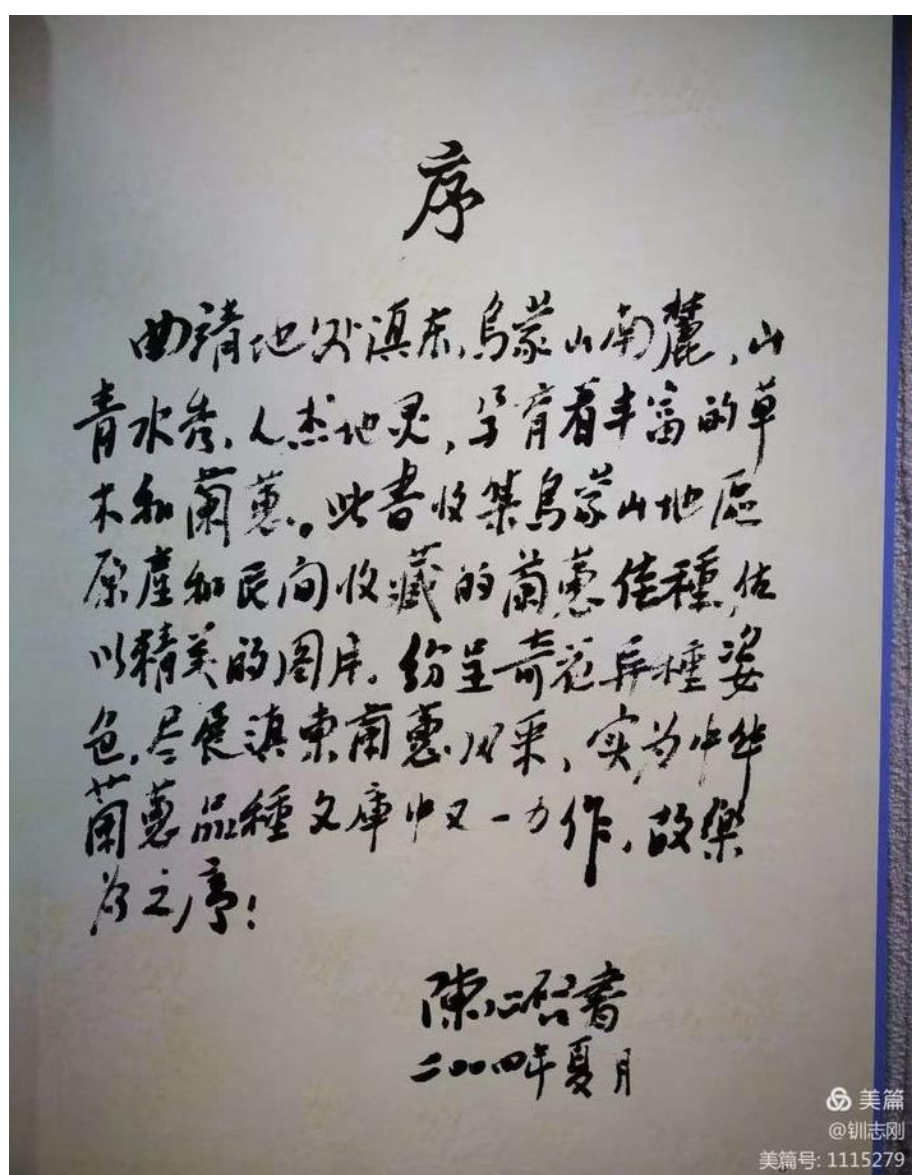 序
曲靖地处滇东,乌蒙山南麓,山
青水秀,人杰地灵,孕育着丰富的草
木和蘭蕙。此書收集烏蒙山地區
原産和民间收藏的蘭蕙佳種,佐
以精美的图片,纷呈奇花异種姿
色,尽展滇東蘭蕙风采,实为中华
蘭蕙品種文庫中又一力作,故樂
为之序!
陳心啓書
二〇〇四年夏月
美篇
@钏志刚
美篇号: 1115279